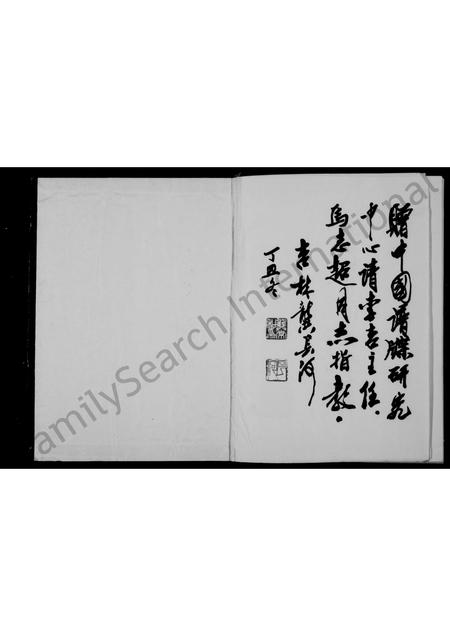 赠中国谱牒研究
中心请李吉主任、
马志超同志指教。
吉林龚
丁丑冬
FamilySearch International